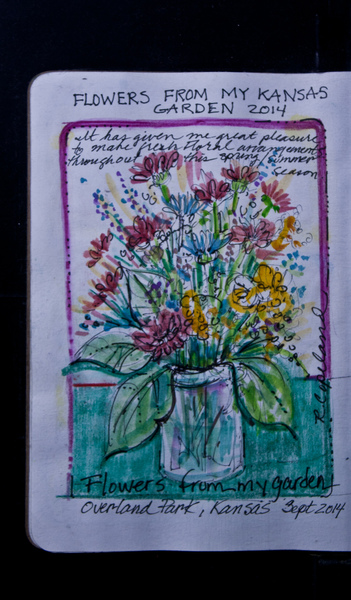 FLOWERS FROM MY KANSAS
GARDEN 2014
It has given me great pleasure
to make fresh floral arrangements
throughout this spring/summer
season
Flowers from my garden
Overland Park, Kansas Sept 2014